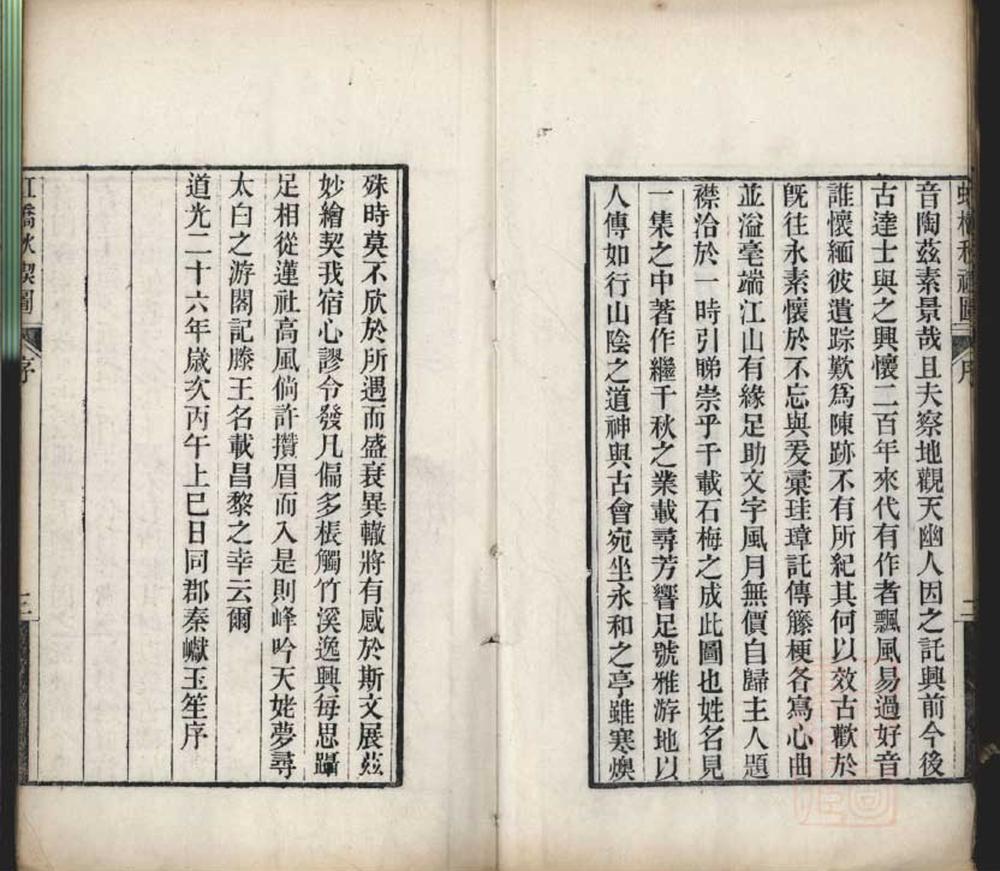 虹橋秋禊圖 序 二
音陶茲素景哉且夫察地觀天幽人因之託興前今後
古達士與之興懷二百年來代有作者飄風易過好音
誰懷緬彼遺踪歎為陳跡不有所紀其何以效古歡於
旣往永素懷於不忘與爰彙珪璋託傳籐梗各寫心曲
並溢毫端江山有緣足助文字風月無價自歸主人題
襟洽於一時引睇崇乎千載石梅之成此圖也姓名見
一集之中著作繼千秋之業載尋芳響足號雅游地以
人傳如行山陰之道神與古會宛坐永和之亭雖寒燠
殊時莫不欣於所遇而盛衰異轍將有感於斯文展玆
妙繪契我宿心謬令發凡偏多棖觸竹溪逸興每思躡
足相從蓮社高風倘許攢眉而入是則峰吟天姥夢尋
太白之游閣記滕王名載昌黎之幸云爾
道光二十六年歲次丙午上巳日同郡秦巘玉笙序
虹橋秋禊圖 序 三